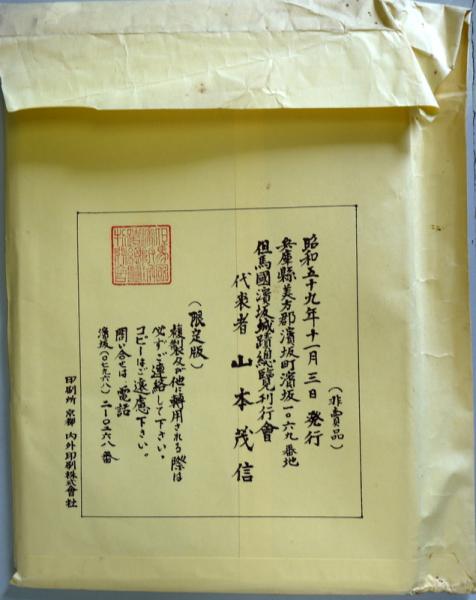 （非賣品）
昭和五十九年十一月三日 発行
兵庫縣美方郡濱坂町濱坂一〇六九番地
但馬國濱坂城蹟總覽刊行會
代表者 山本茂信
（限定版）
複製及び他に轉用される際は
必ずご連絡して下さい。
コピーはご遠慮下さい。
問い合せは 電話
濱坂（〇七九六八）二－〇三六八番
印刷所 京都 内外印刷株式會社